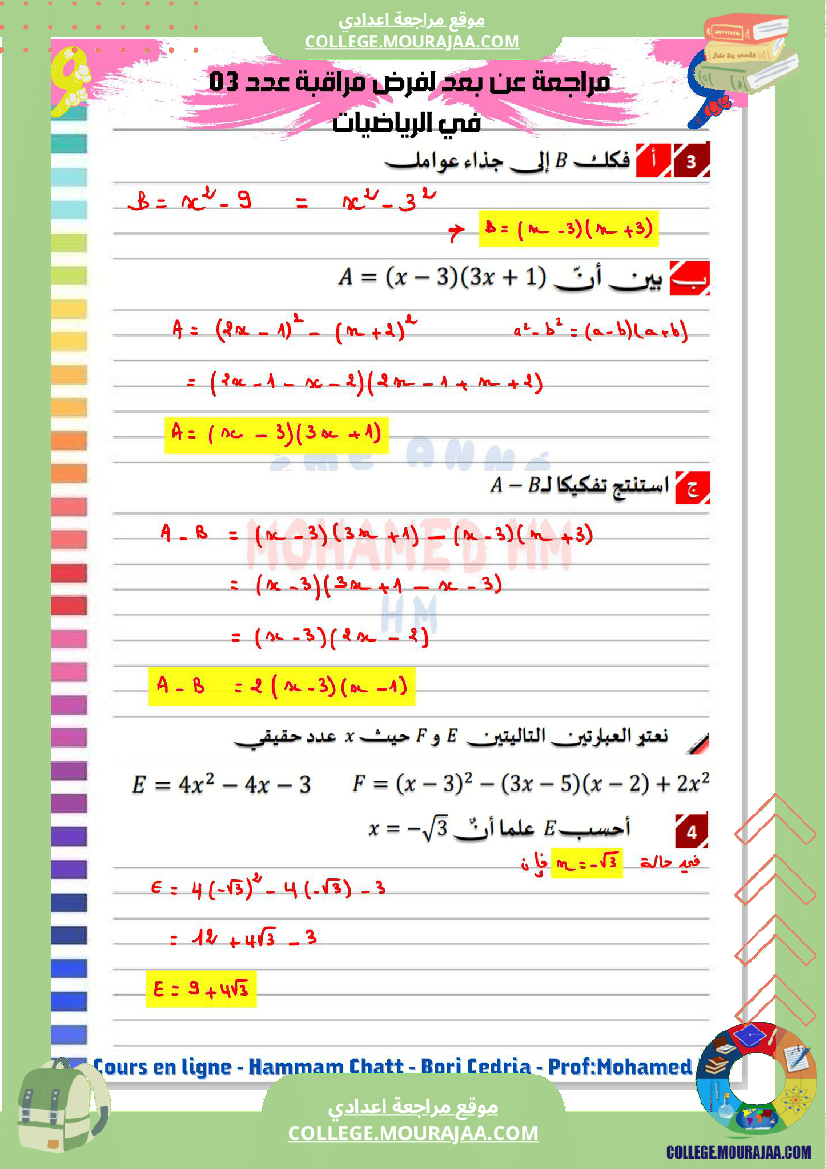 موقع مراجعة اعدادي
COLLEGE.MOURAJAA.COM
مراجعة عن بعد لفرض مراقبة عدد 03
في الرياضيات
3 أ فكك B إلى جذاء عوامل
B = x² - 9 = x² - 3²
→ B = (x - 3)(x + 3)
ب بين أنّ A = (x − 3)(3x + 1)
A = (2x - 1)² - (x + 2)² a² - b² = (a - b)(a + b)
= (2x - 1 - x - 2)(2x - 1 + x + 2)
A = (x - 3)(3x + 1)
ج استنتج تفكيكا لـ A − B
MOHAMED HM
HM
A - B = (x - 3)(3x + 1) - (x - 3)(x + 3)
= (x - 3)(3x + 1 - x - 3)
= (x - 3)(2x - 2)
A - B = 2(x - 3)(x - 1)
نعتبر العبارتين التاليتين E و F حيث x عدد حقيقي
E = 4x² − 4x − 3 F = (x − 3)² − (3x − 5)(x − 2) + 2x²
4 أحسب E علما أنّ x = −√3
في حالة x = -√3 فإن
E = 4(-√3)² - 4(-√3) - 3
= 12 + 4√3 - 3
E = 9 + 4√3
Cours en ligne - Hammam Chatt - Borj Cedria - Prof:Mohamed
موقع مراجعة اعدادي
COLLEGE.MOURAJAA.COM
COLLEGE.MOURAJAA.COM